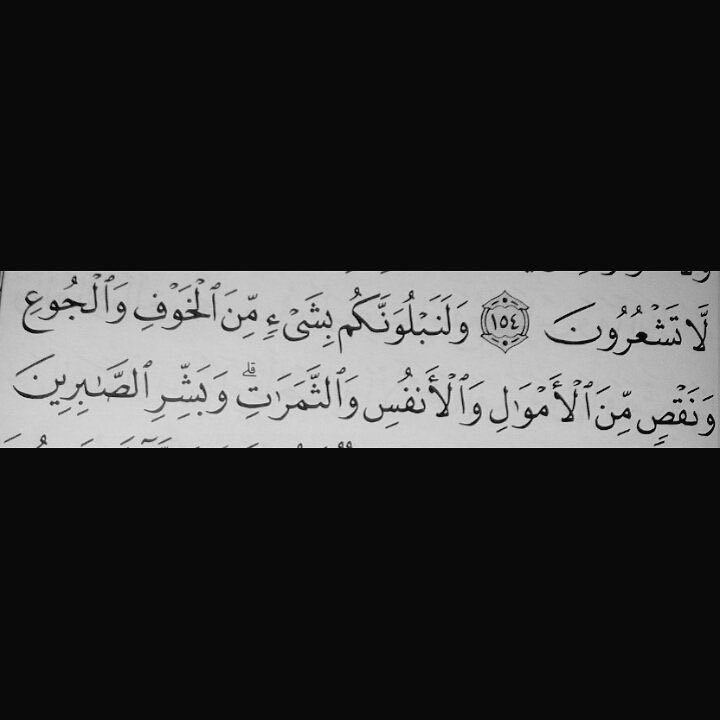 لَّا تَشْعُرُونَ ١٥٤ وَلَنَبْلُوَنَّكُم بِشَىْءٍ مِّنَ ٱلْخَوْفِ وَٱلْجُوعِ
وَنَقْصٍ مِّنَ ٱلْأَمْوَٰلِ وَٱلْأَنفُسِ وَٱلثَّمَرَٰتِ ۗ وَبَشِّرِ ٱلصَّٰبِرِينَ